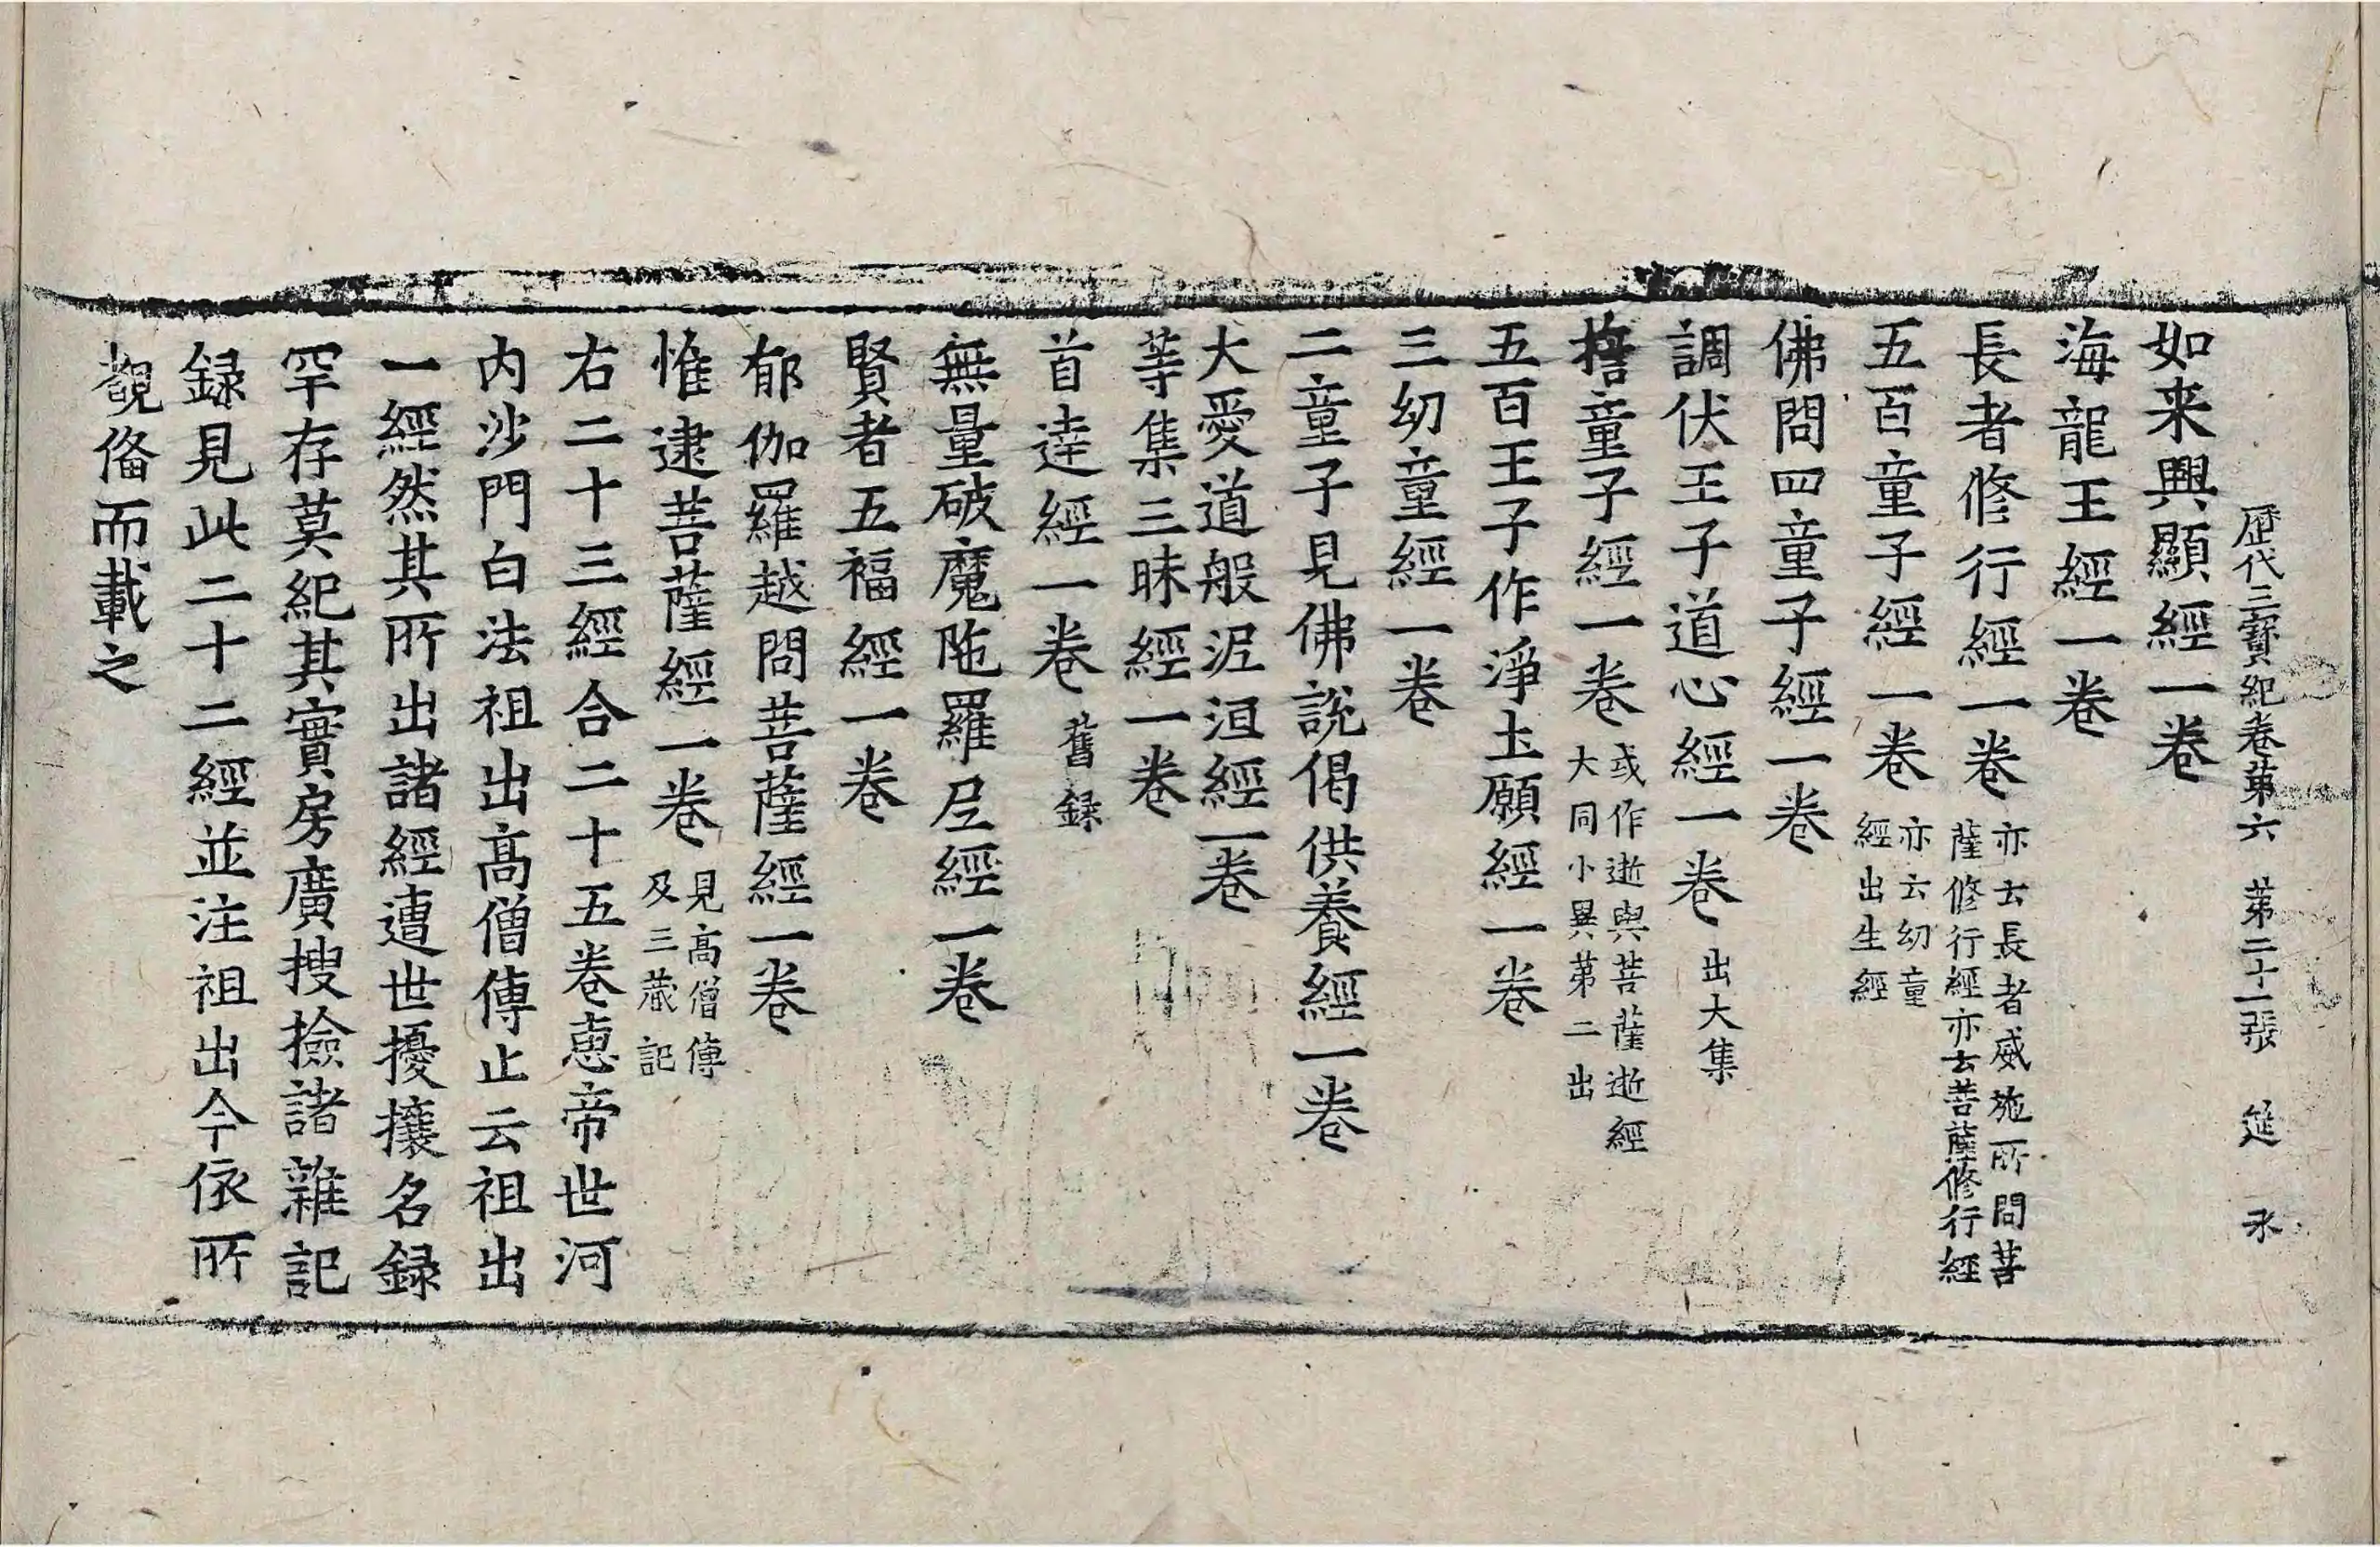 歷代三寶紀卷第六 第二十一張 筵 禾
如来興顯經一卷
海龍王經一卷
長者修行經一卷 亦云長者威施所問菩
薩修行經亦云菩薩修行經
五百童子經一卷 亦云幼童
經出生經
佛問四童子經一卷
調伏王子道心經一卷 出大集
揞童子經一卷 或作逝與菩薩逝經
大同小異第二出
五百王子作淨土願經一卷
三幼童經一卷
二童子見佛說偈供養經一卷
大愛道般泥洹經一卷
等集三昧經一卷
首達經一卷 舊錄
無量破魔陁羅尼經一卷
賢者五福經一卷
郁伽羅越問菩薩經一卷
惟逮菩薩經一卷 見高僧傳
及三藏記
右二十三經合二十五卷惠帝世河
内沙門白法祖出高僧傳止云祖出
一經然其所出諸經遭世擾攘名録
罕存莫紀其實房廣搜撿諸雜記
録見此二十二經並注祖出今依所
覩俻而載之